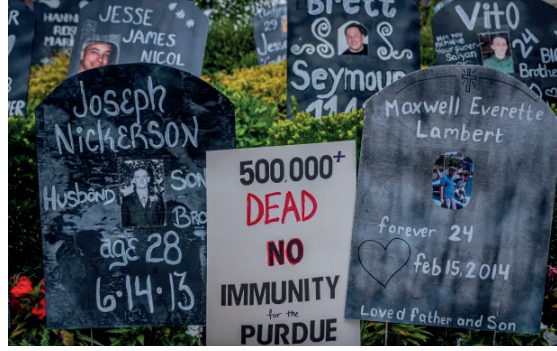 JESSE
JAMES
NICOL
Brett
Seymour
Vito
24
Joseph
Nickerson
Husband
Son
age 28
6·14·13
500,000+
DEAD
NO
IMMUNITY
for the
PURDUE
Maxwell Everette
Lambert
forever 24
feb 15, 2014
Loved father and Son